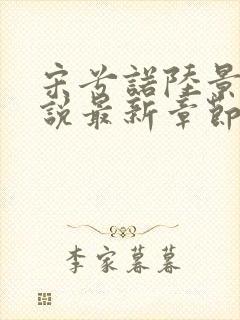 宋兮諾陸景
說最新章節
李家暮暮